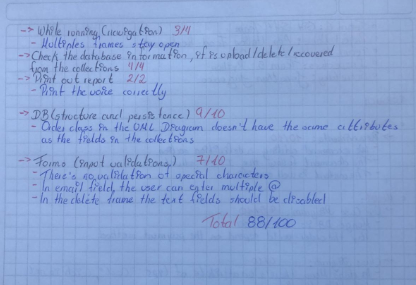 -> While running, (navigation) 3/4
- Multiples frames stay open
-> Check the database information, if is upload/delete/recovered
from the collections 4/4
-> Print out report 2/2
- Print the voice correctly
-> DB (structure and persistence) 9/10
- Order class in the UML Diagram doesn't have the same attributes
as the fields in the collections
-> Forms (input validations,) 7/10
- There's validation of special characters
- In email field, the user can enter multiple @
- In the delete frame the text fields should be disabled
Total 88/100